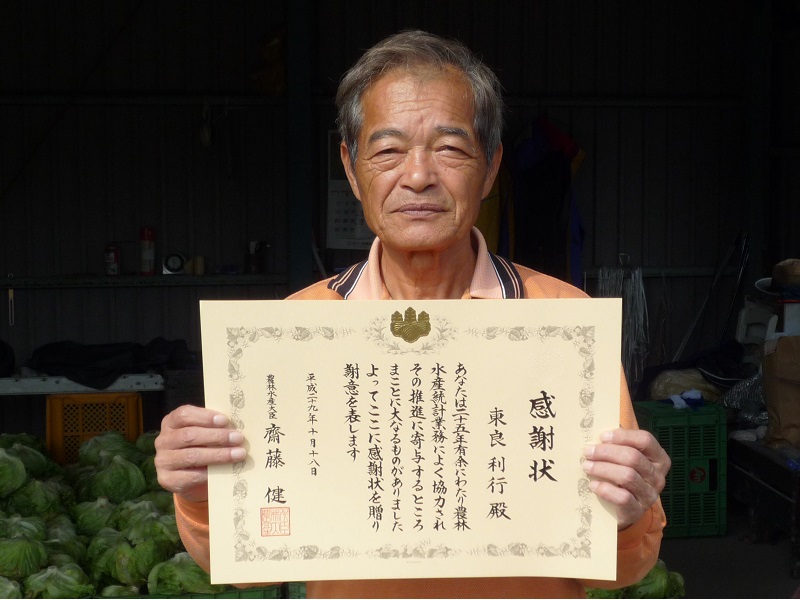 感謝状
東良利行殿
あなたは二十五年有余にわたり農林
水産統計業務によく協力され
その推進に寄与するところ
まことに大なるものがありました
よってここに感謝状を贈り
謝意を表します
平成二十九年十月十八日
農林水産大臣 齋藤健